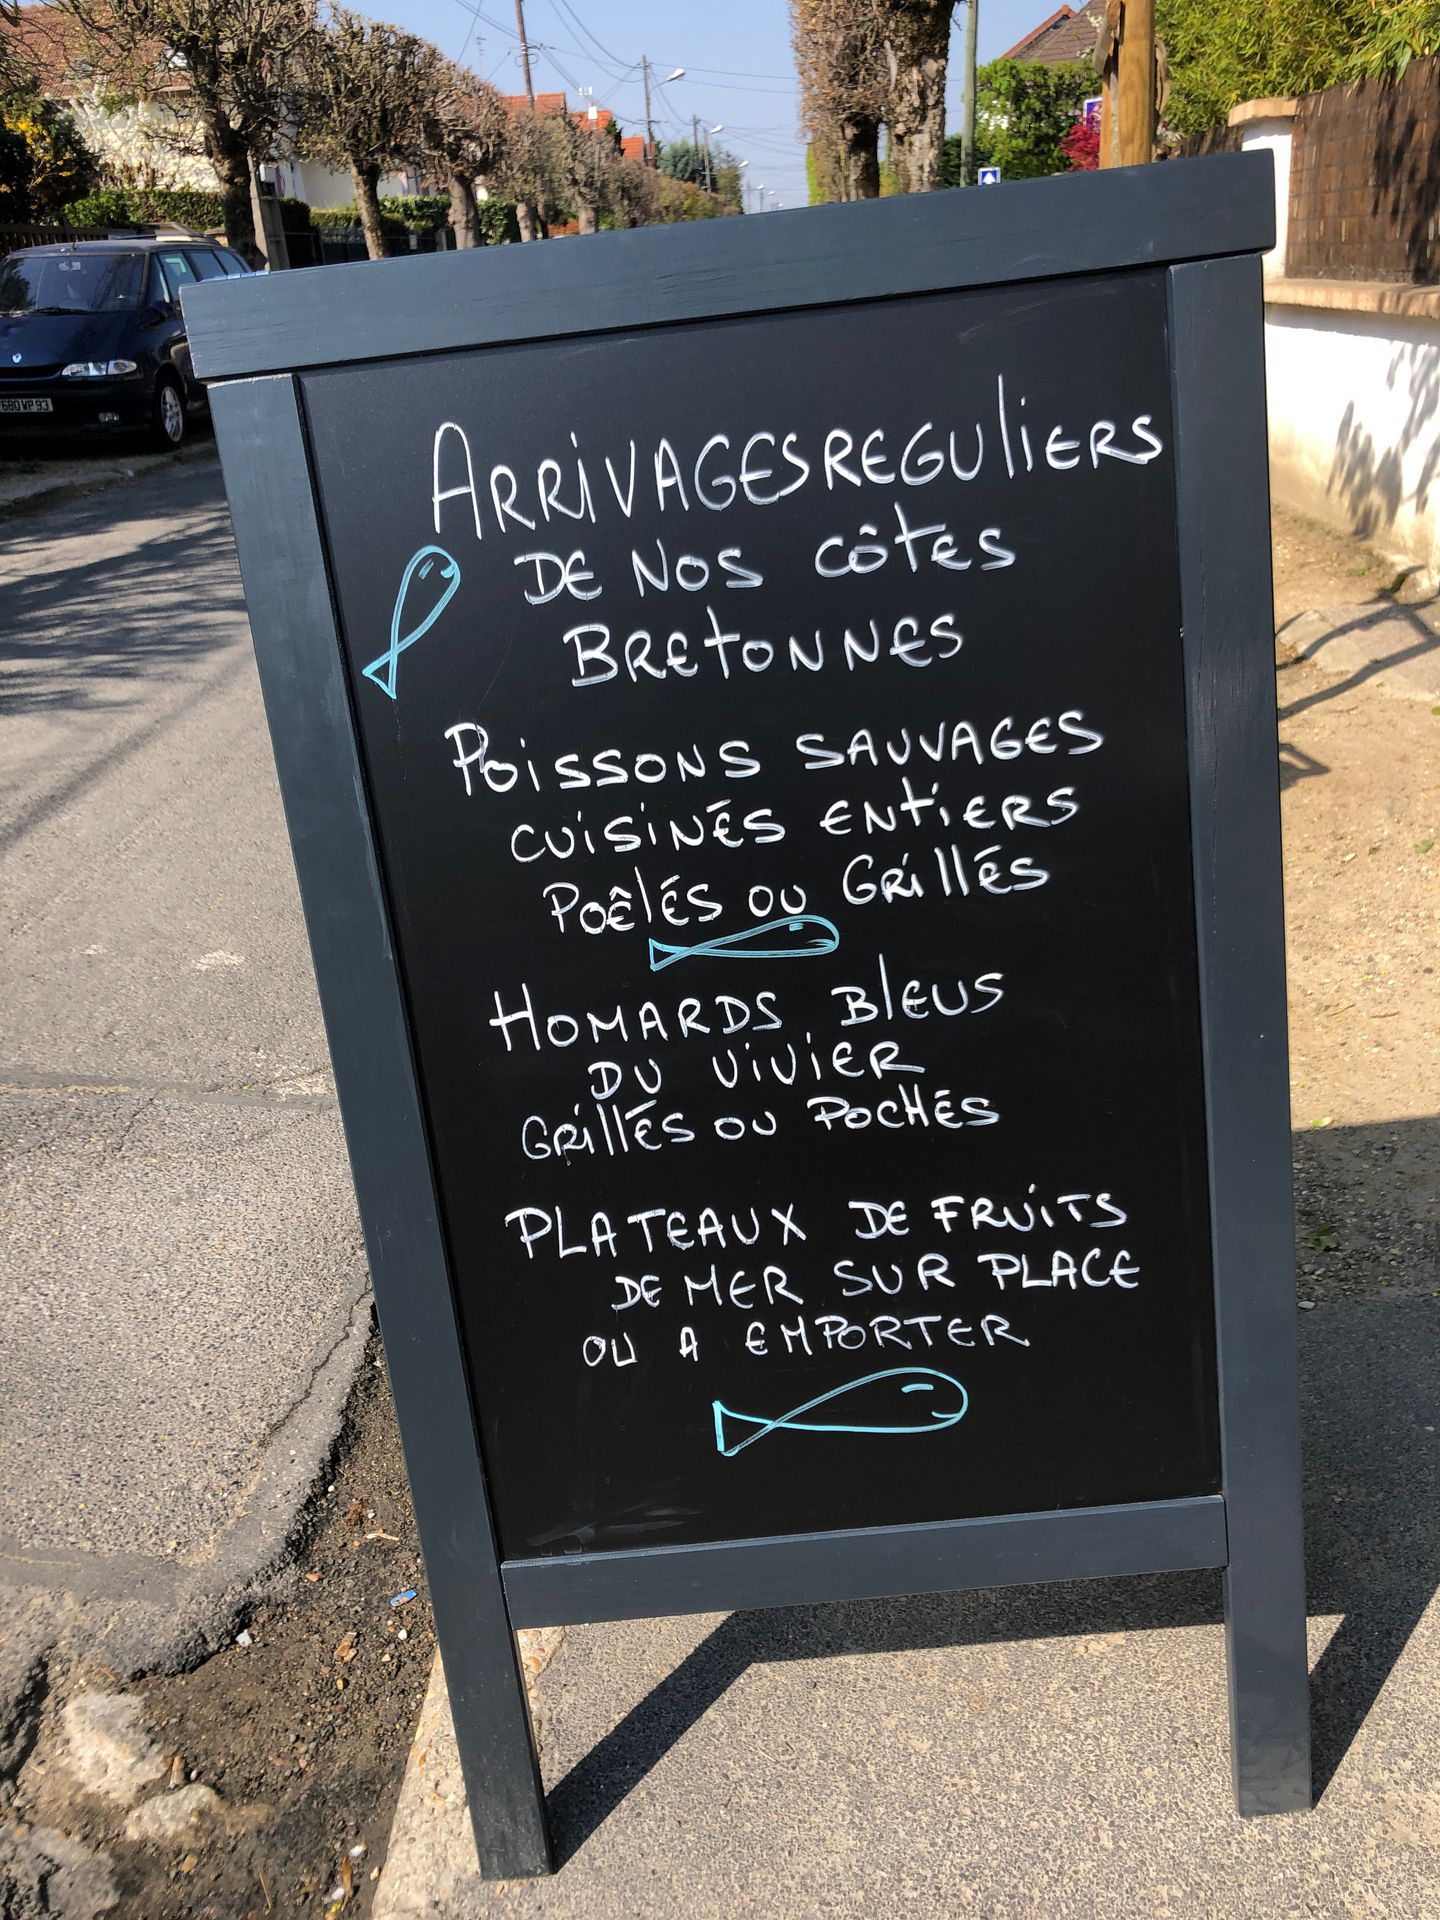 ARRIVAGES REGULIERS
DE NOS CÔTES
BRETONNES
POISSONS SAUVAGES
CUISINÉS ENTIERS
POÊLÉS OU GRILLÉS
HOMARDS BLEUS
DU VIVIER
GRILLÉS OU POCHÉS
PLATEAUX DE FRUITS
DE MER SUR PLACE
OU A EMPORTER
680 WP 93